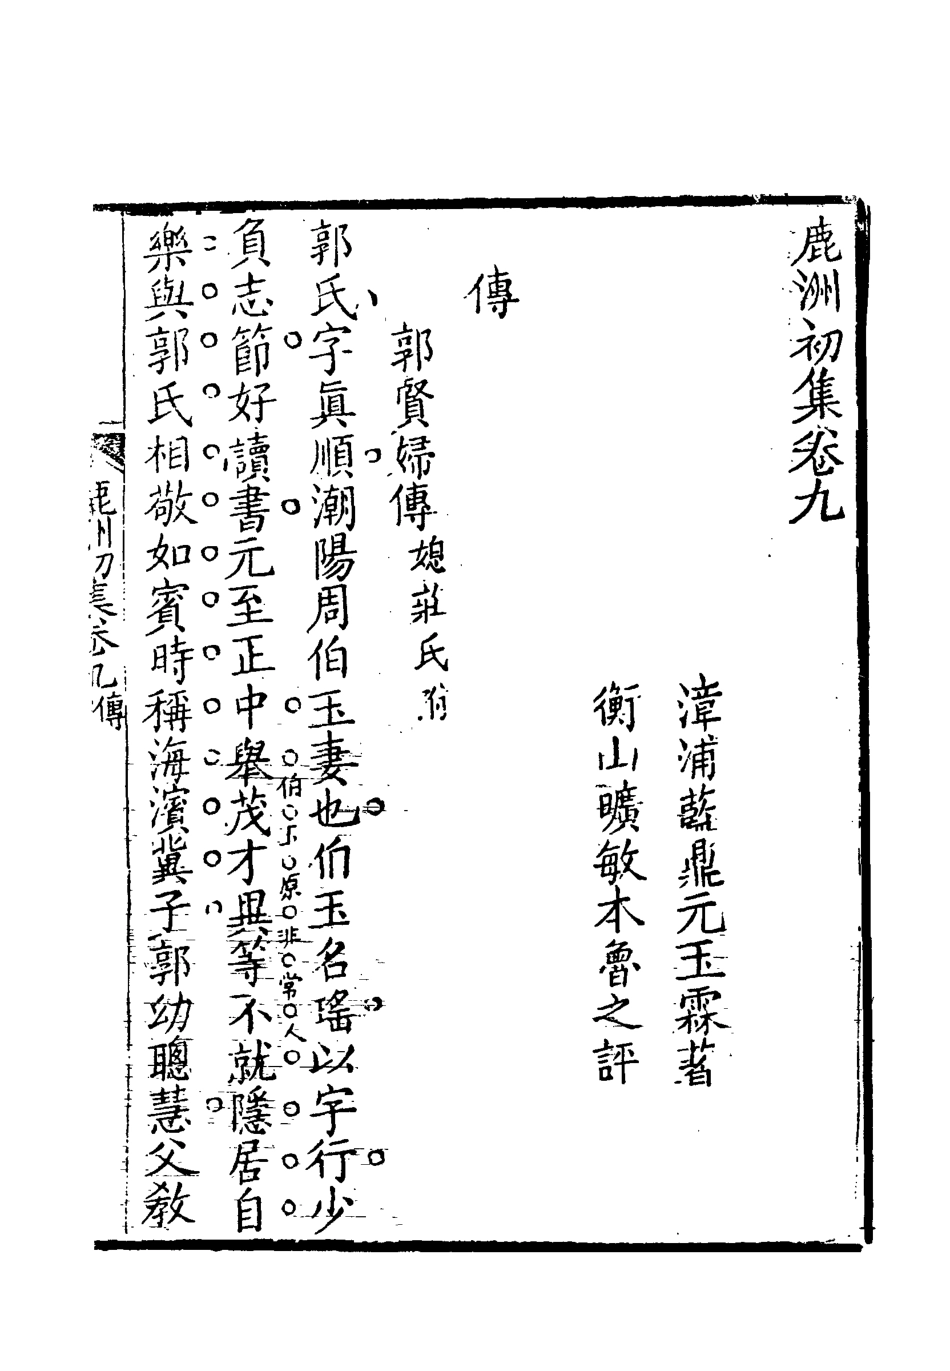 鹿洲初集卷九
漳浦藍鼎元玉霖著
衡山曠敏本魯之評
傳
郭賢婦傳媳莊氏附
郭氏字眞順潮陽周伯玉妻也伯玉名瑤以字行少
伯玉原非常人
負志節好讀書元至正中舉茂才異等不就隱居自
樂與郭氏相敬如賓時稱海濱冀子郭幼聰慧父教
鹿洲初集卷九傳